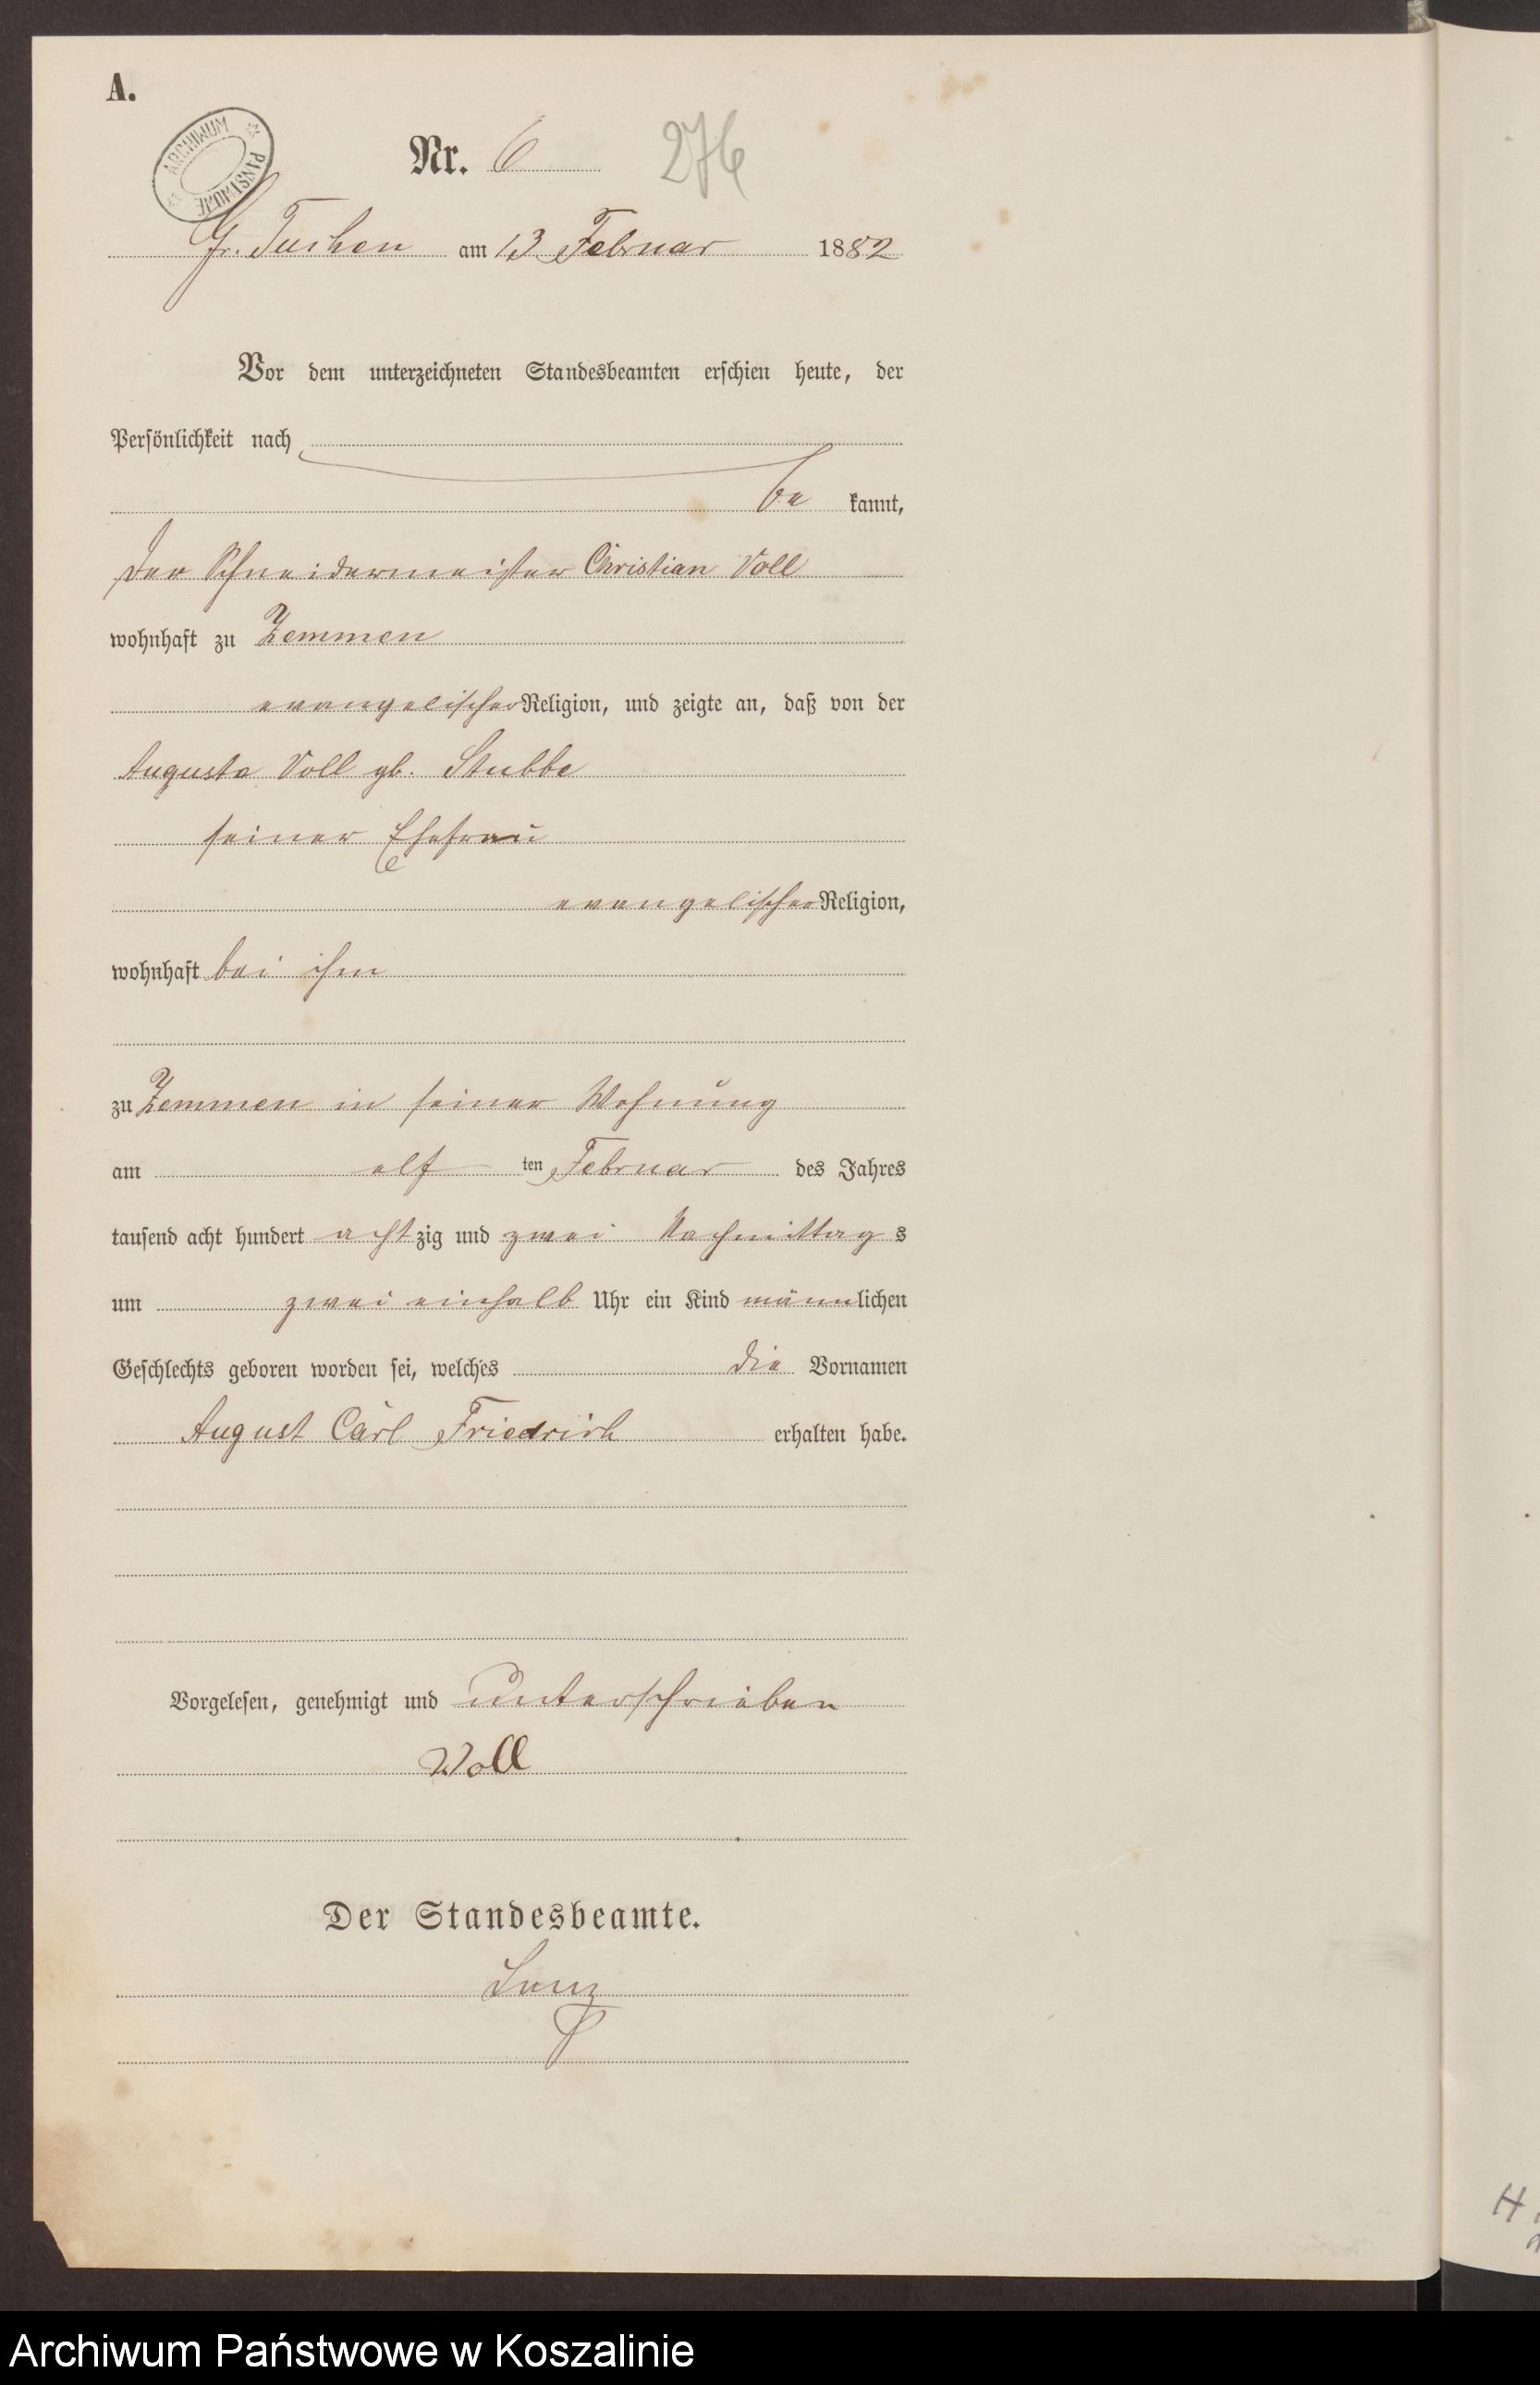 A.
ARCHIWUM PAŃSTWOWE
Nr. 6 276
Gr. Tuchen am 13 Februar 1882
Vor dem unterzeichneten Standesbeamten erschien heute, der
Persönlichkeit nach
be kannt,
der Schneidermeister Christian Voll
wohnhaft zu Zemmen
evangelischer Religion, und zeigte an, daß von der
Auguste Voll gb. Stubbe
seiner Ehefrau
evangelischer Religion,
wohnhaft bei ihm
zu Zemmen in seiner Wohnung
am elf ten Februar des Jahres
tausend acht hundert acht zig und zwei Nachmittag s
um zwei einhalb Uhr ein Kind männlichen
Geschlechts geboren worden sei, welches die Vornamen
August Carl Friedrich erhalten habe.
Vorgelesen, genehmigt und unterschrieben
Voll
Der Standesbeamte.
H.
Archiwum Państwowe w Koszalinie